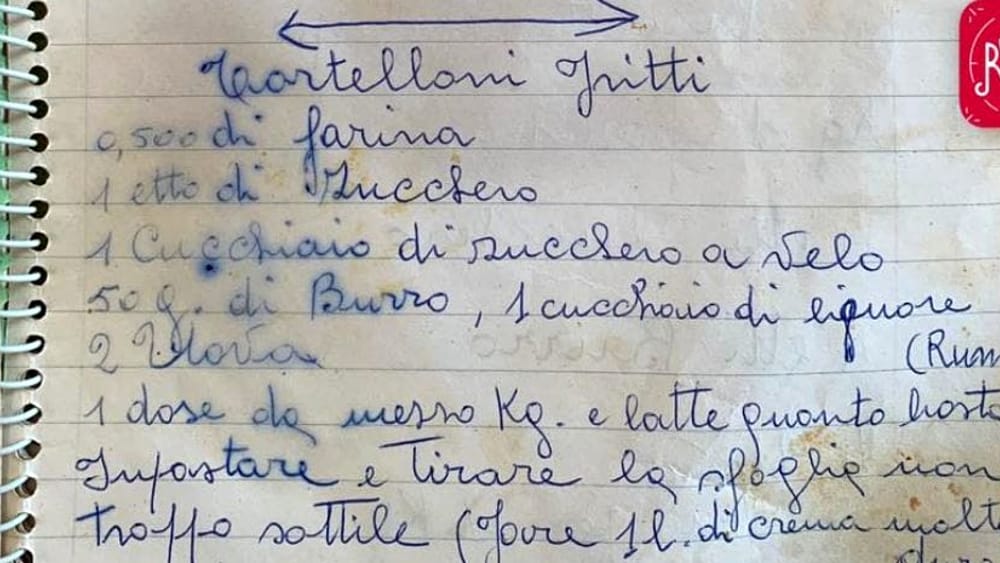 Tortelloni Fritti
0,500 di farina
1 etto di Zucchero
1 Cucchiaio di zucchero a Velo
50 g. di Burro, 1 cucchiaio di liquore
2 Uova (Rum
1 dose da mezzo Kg. e latte quanto basta
Impastare e Tirare la sfoglia non
troppo sottile (fare 1 l. di crema molt
R